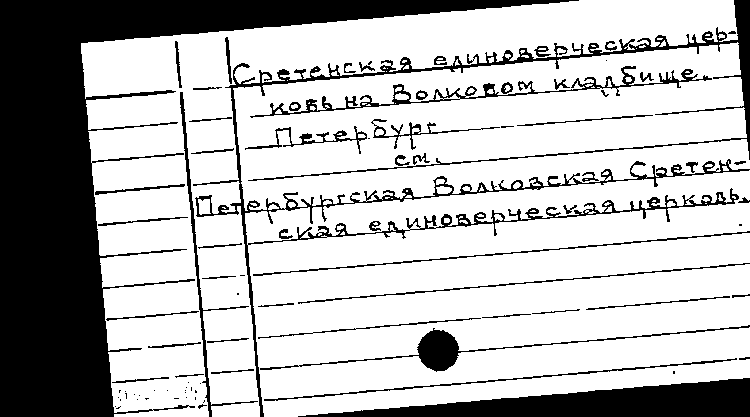 Сретенская единоверческая цер-
ковь на Волковом кладбище.
Петербург
см.
Петербургская Волковская Сретен-
ская единоверческая церковь.